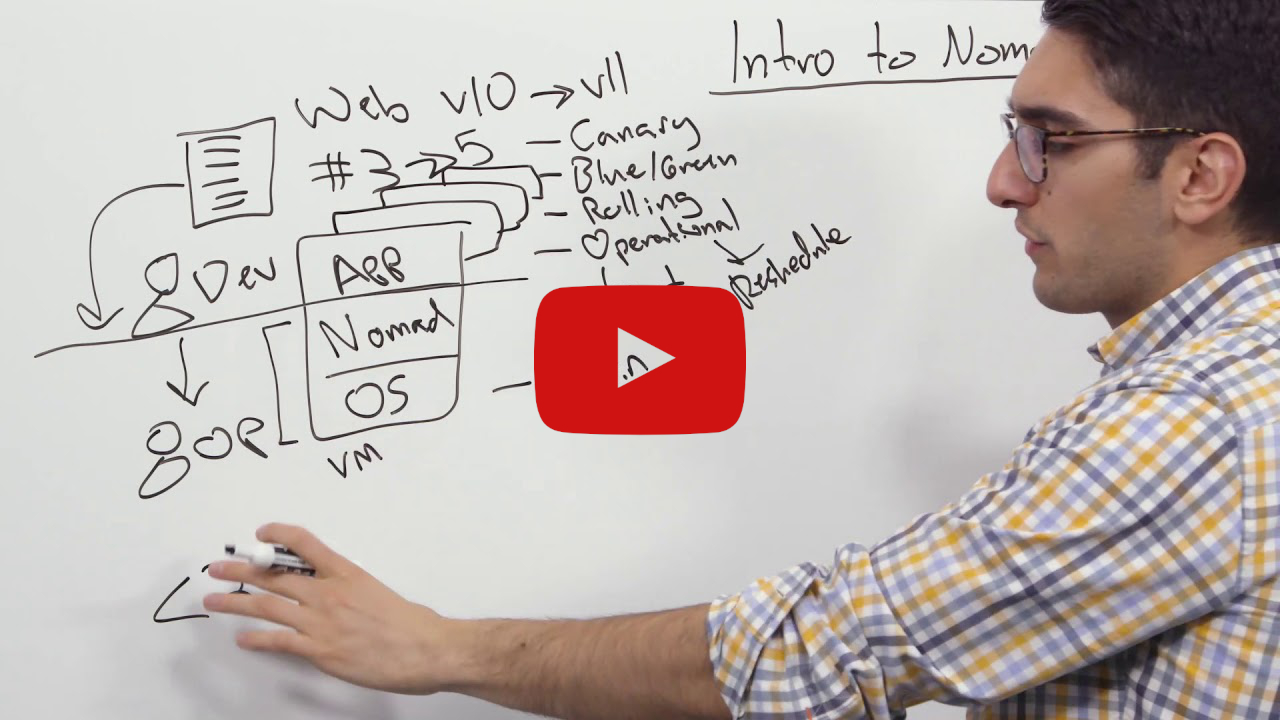 Intro to Nom
Web v10 → v11
#3 → 5
— Canary
— Blue/Green
— Rolling
— Operational
Reshedule
Dev
APP
Nomad
OS
OP
VM